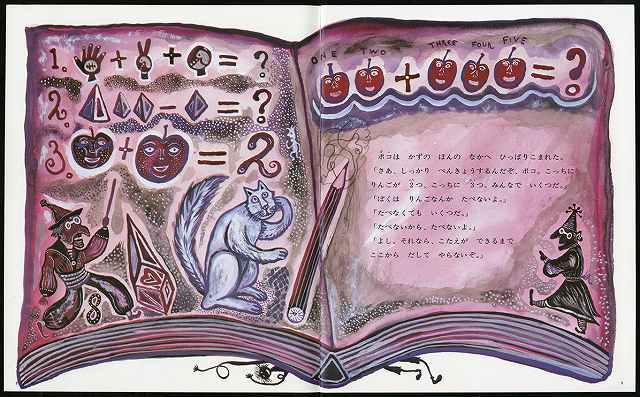 1. + + = ?
2. - = ?
3. + = 2
ONE TWO THREE FOUR FIVE
+ = ?
ポコは かずの ほんの なかへ ひっぱりこまれた。
「さあ、しっかり べんきょうするんだぞ、ポコ。こっちに
りんごが 3つ、こっちに 3つ、みんなで いくつだ。」
「ぼくは りんごなんか たべないよ。」
「たべなくても いくつだ。」
「たべないから、たべないよ。」
「よし、それなら、こたえが できるまで
ここから だして やらないぞ。」
8